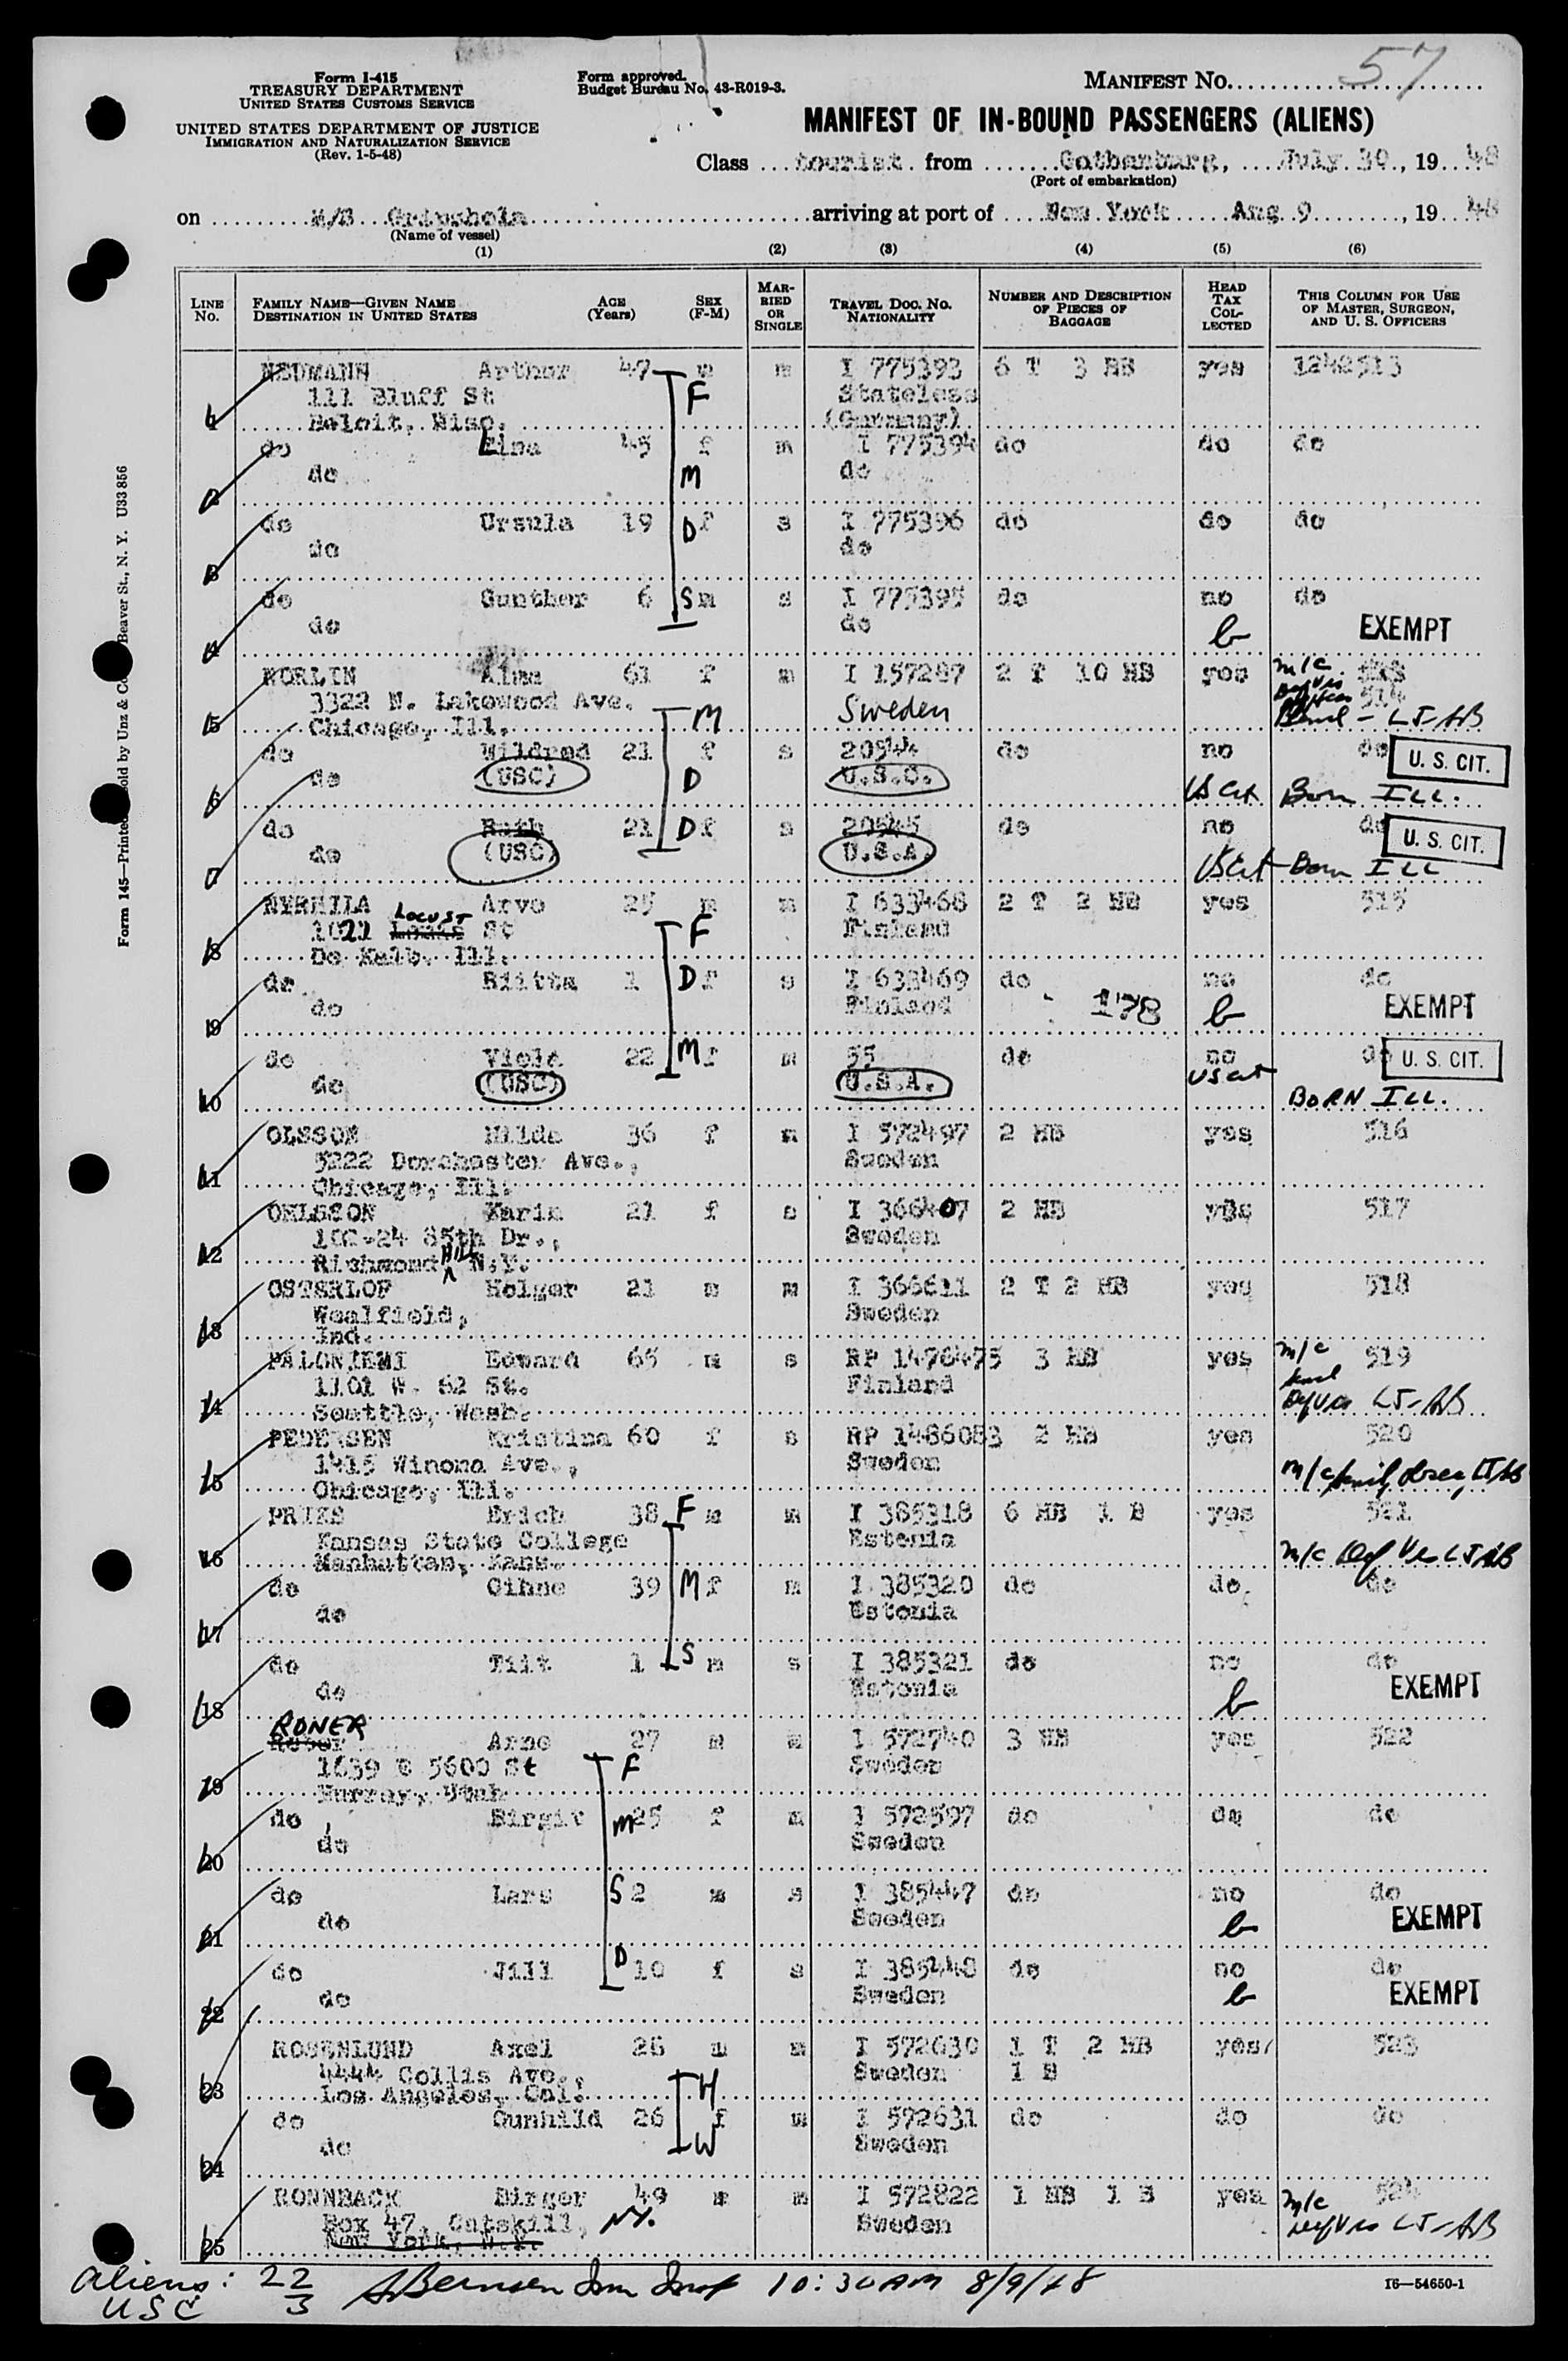 57
Form I-415
TREASURY DEPARTMENT
UNITED STATES CUSTOMS SERVICE
UNITED STATES DEPARTMENT OF JUSTICE
IMMIGRATION AND NATURALIZATION SERVICE
(Rev. 1-5-48)
Form approved.
Budget Bureau No. 43-R019-3.
MANIFEST NO.
MANIFEST OF IN-BOUND PASSENGERS (ALIENS)
Class tourist from Gothenburg, July 30, 19 48
(Port of embarkation)
on M/S Gripsholm arriving at port of New York Aug 9, 19 48
(Name of vessel)
(1) (2) (3) (4) (5) (6)
LINE NO. FAMILY NAME—GIVEN NAME DESTINATION IN UNITED STATES AGE (Years) SEX (F-M) MARRIED OR SINGLE TRAVEL DOC. NO. NATIONALITY NUMBER AND DESCRIPTION OF PIECES OF BAGGAGE HEAD TAX COLLECTED THIS COLUMN FOR USE OF MASTER, SURGEON, AND U. S. OFFICERS
NEUMANN Arthur 47 m m I 775393 6 T 3 HB yes 1242513
111 Bluff St F Stateless
1 Beloit, Wisc. (Germany)
do Lina 45 f m I 775394 do do do
do M do
2
do Ursula 19 D f s I 775396 do do do
do do
3
do Gunther 6 S m s I 775395 do no do
do do b EXEMPT
4
NORLIN Alma 61 f m I 157287 2 T 10 HB yes m/c
3322 N. Lakewood Ave. Sweden 514
5 Chicago, Ill. M LJ-AB
do Mildred 21 f s 20544 do no do U. S. CIT.
do (USC) D U.S.C.
6 US Cit Born ILL.
do Ruth 21 D f s 20545 do no do U. S. CIT.
do (USC) U.S.A.
7 US Cit Born ILL
NYRHILA Arvo 25 m m I 633468 2 T 2 HB yes 515
1021 LOCUST St F Finland
8 De Kalb, Ill.
do Riitta 1 D f s I 633469 do no do
do Finland 178 b EXEMPT
9
do Viola 22 M f m 55 do no do U. S. CIT.
do (USC) U.S.A. US Cit
10 BORN ILL.
OLSSON Hilda 36 f m I 572497 2 HB yes 516
5222 Dorchester Ave., Sweden
11 Chicago, Ill.
OHLSSON Karin 21 f s I 366407 2 HB yes 517
102-24 85th Dr., Sweden
12 Richmond HILL N.Y.
OSTERLOF Holger 21 m m I 366611 2 T 2 HB yes 518
Wealfield, Sweden
13 Ind.
PALONIEMI Edward 65 m s RP 1476475 3 HB yes m/c 519
1101 W. 62 St. Finland
14 Seattle, Wash. LJ-AB
PEDERSEN Kristina 60 f s RP 1486083 2 HB yes 520
1415 Winona Ave., Sweden
15 Chicago, Ill. m/c
PRIKS Erich 38 F m m I 385318 6 HB 1 B yes 521
Kansas State College Estonia
16 Manhattan, Kans. m/c Def Vis LJ AB
do Oihne 39 M f m I 385320 do do do
do Estonia
17
do Tiit 1 S m s I 385321 do no do
do Estonia b EXEMPT
18
RONER Arne 27 m m I 572740 3 HB yes 522
1639 E 5600 St F Sweden
19 Murray, Utah
do Birgit M 25 f m I 572597 do do do
do Sweden
20
do Lars S 2 m s I 385447 do no do
do Sweden b EXEMPT
21
do Jill D 10 f s I 385448 do no do
do Sweden b EXEMPT
22
ROSENLUND Axel 26 m m I 572630 1 T 2 HB yes 523
4444 Collis Ave., H Sweden 1 B
23 Los Angeles, Cal.
do Gunhild 26 f m I 572631 do do do
do W Sweden
24
RONNBACK Birger 49 m m I 572822 1 HB 1 B yes m/c 524
Box 47, Catskill, NY. Sweden LJ-AB
25 New York, N.Y.
aliens: 22
USC 3
10:30 AM 8/9/48
16—54650-1
Form 145—Printed
Sold by Unz & Co
Beaver St., N. Y. U33856